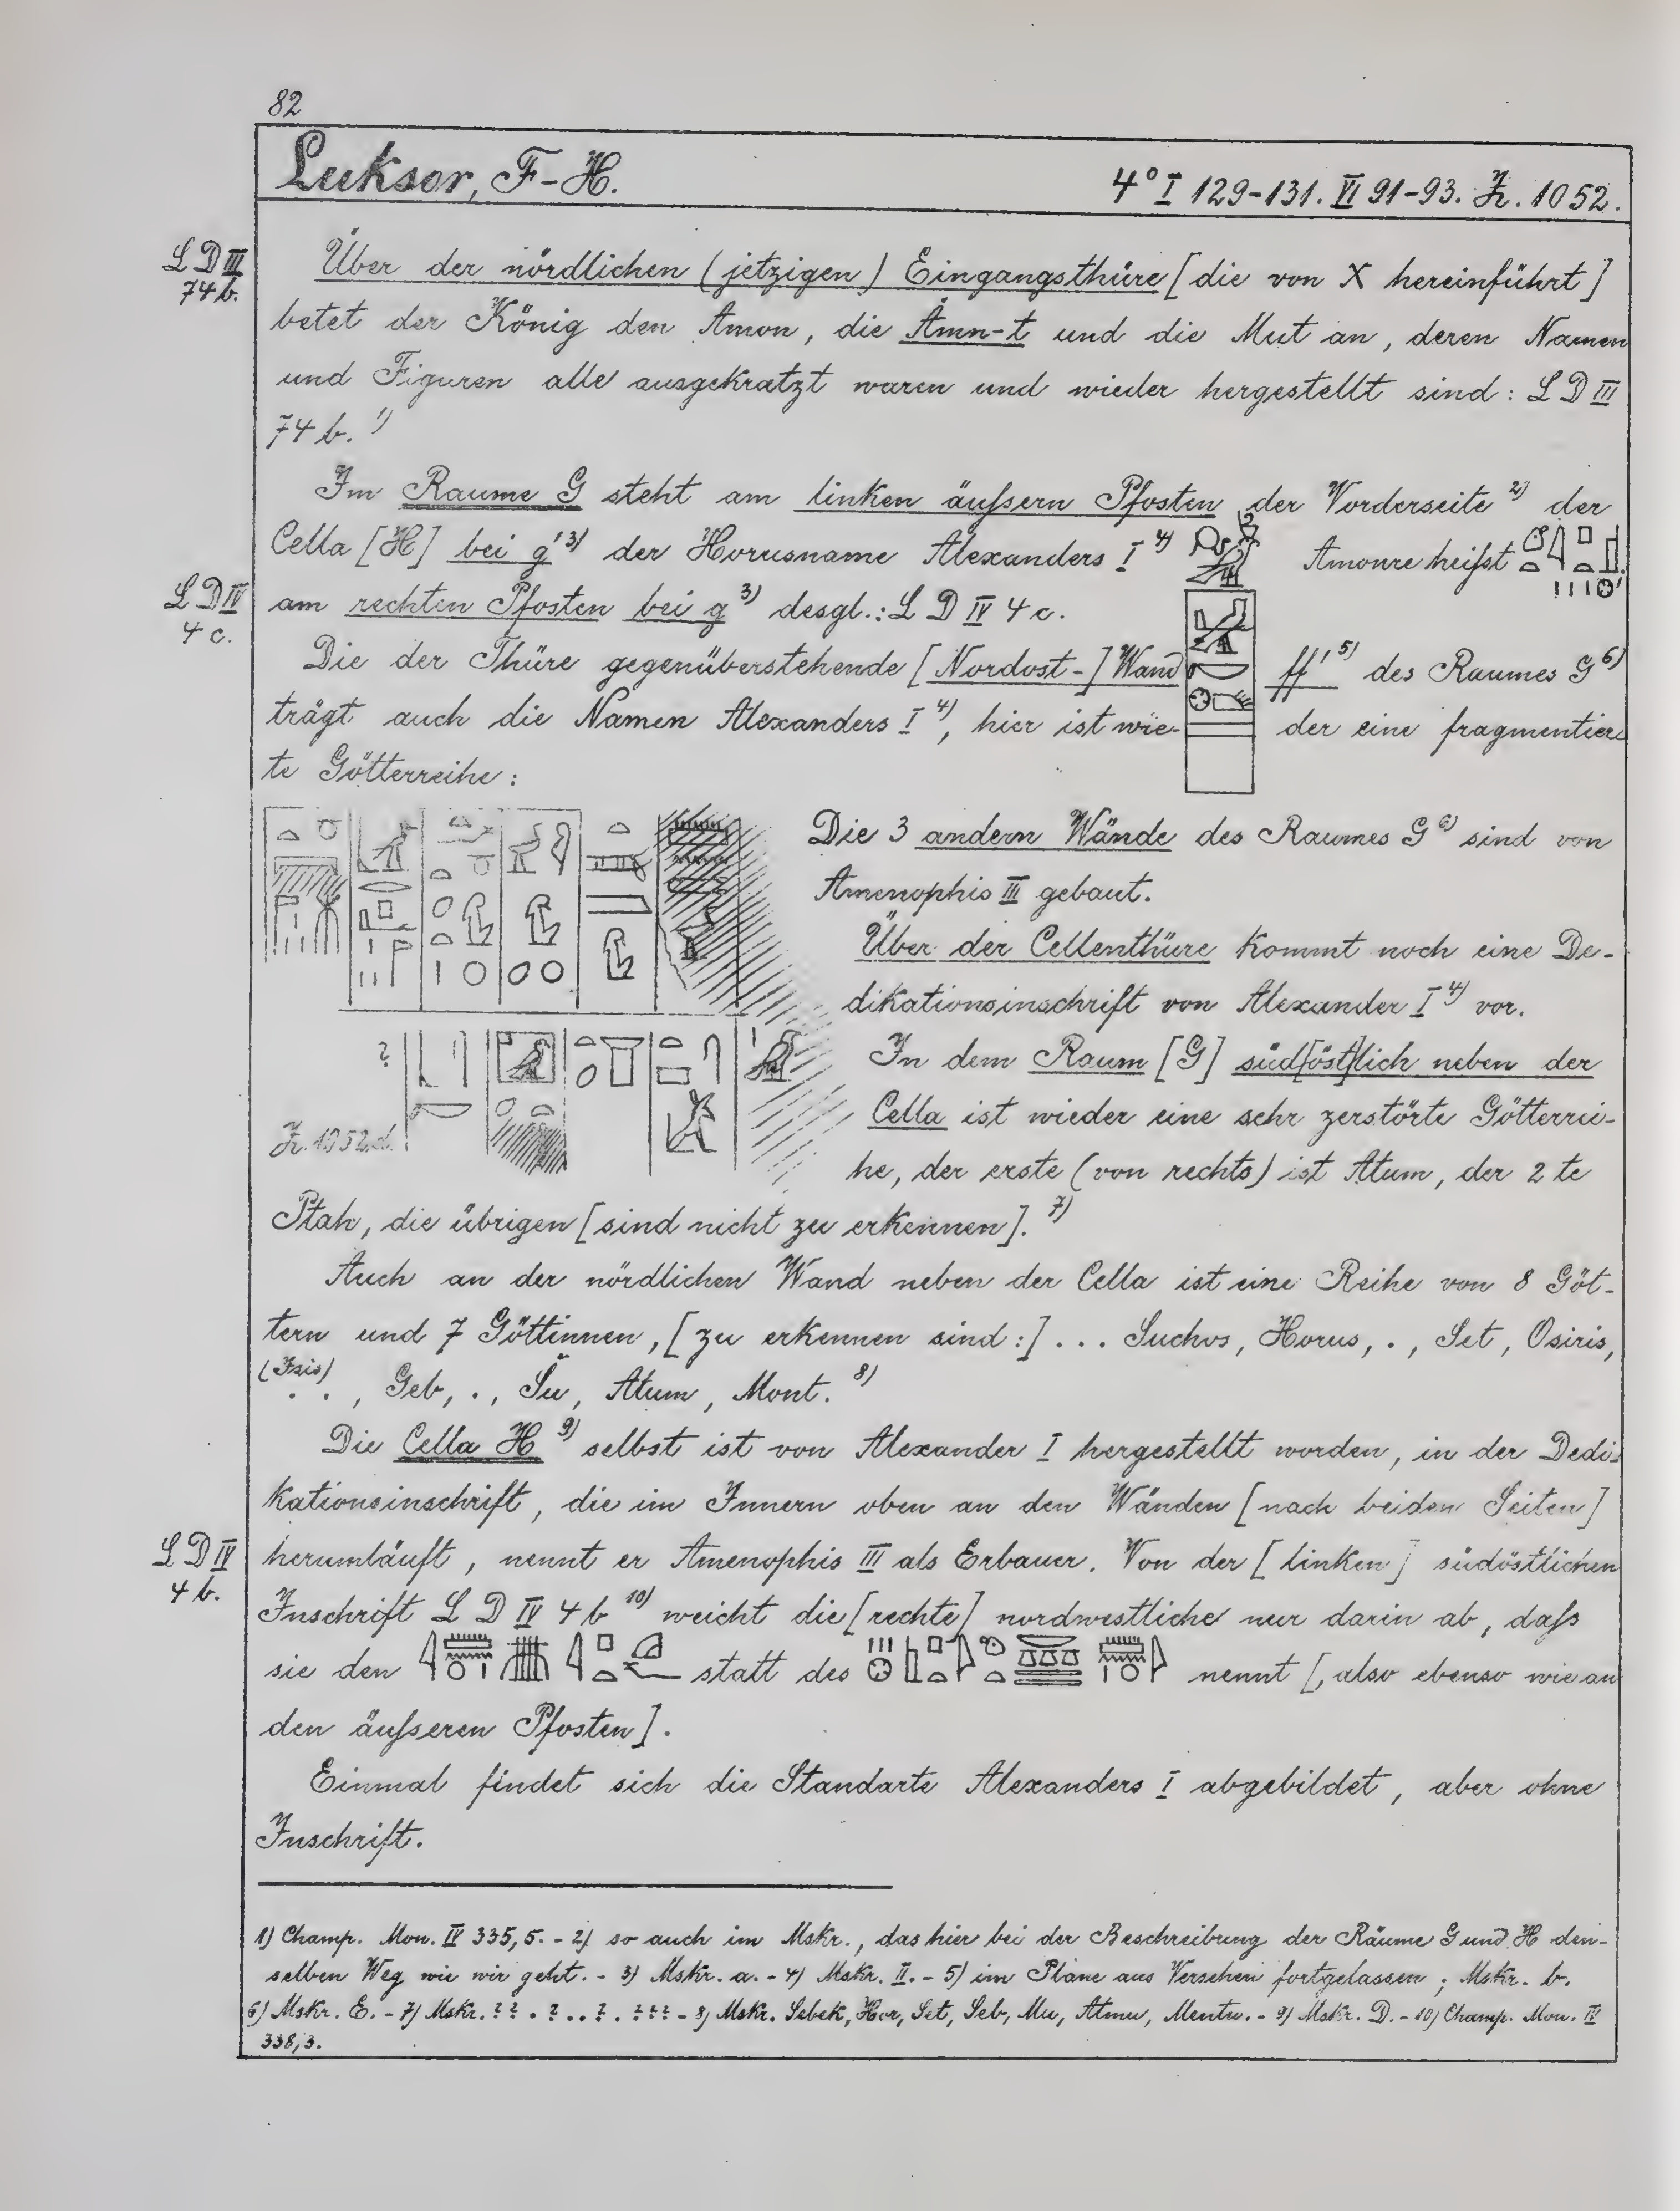 82
Luksor, F-H.
4° I 129-131. VI 91-93. Z. 1052.
L D III
74 b.
Über der nördlichen (jetzigen) Eingangsthüre [die von X hereinführt]
betet der König den Amon, die Ȧmn-t und die Mut an, deren Namen
und Figuren alle ausgekratzt waren und wieder hergestellt sind: L D III
74 b. 1)
Im Raume G steht am linken äußern Pfosten der Vorderseite 2) der
Cella [H] bei g' 3) der Horusname Alexanders I 4) Amonre heißt
L D IV
4 c.
am rechten Pfosten bei g 3) desgl.: L D IV 4 c.
Die der Thüre gegenüberstehende [Nordost-] Wand ff' 5) des Raumes G 6)
trägt auch die Namen Alexanders I 4), hier ist wie- der eine fragmentier-
te Götterreihe:
Die 3 andern Wände des Raumes G 6) sind von
Amenophis III gebaut.
Über der Cellenthüre kommt noch eine De-
dikationsinschrift von Alexander I 4) vor.
In dem Raum [G] süd[öst]lich neben der
Cella ist wieder eine sehr zerstörte Götterrei-
he, der erste (von rechts) ist Atum, der 2 te
?
Z. 1052.d.
Ptah, die übrigen [sind nicht zu erkennen]. 7)
Auch an der nördlichen Wand neben der Cella ist eine Reihe von 8 Göt-
tern und 7 Göttinnen, [zu erkennen sind:] ... Suchos, Horus, ., Set, Osiris,
(Isis)
. . , Geb, ., Šu, Atum, Mont. 8)
Die Cella H 9) selbst ist von Alexander I hergestellt worden, in der Dedi-
kationsinschrift, die im Innern oben an den Wänden [nach beiden Seiten]
L D IV
4 b.
herumläuft, nennt er Amenophis III als Erbauer. Von der [linken] südöstlichen
Inschrift L D IV 4 b 10) weicht die [rechte] nordwestliche nur darin ab, daß
sie den statt des nennt [, also ebenso wie an
den äußeren Pfosten].
Einmal findet sich die Standarte Alexanders I abgebildet, aber ohne
Inschrift.
1) Champ. Mon. IV 335,5. - 2) so auch im Mskr., das hier bei der Beschreibung der Räume G und H den-
selben Weg wie wir geht. - 3) Mskr. a. - 4) Mskr. II. - 5) im Plane aus Versehen fortgelassen; Mskr. b.
6) Mskr. E. - 7) Mskr. ? ? . ? . . ? . ? ? ? - 8) Mskr. Sebek, Hor, Set, Seb, Mu, Atmu, Mentu. - 9) Mskr. D. - 10) Champ. Mon. IV
338,3.